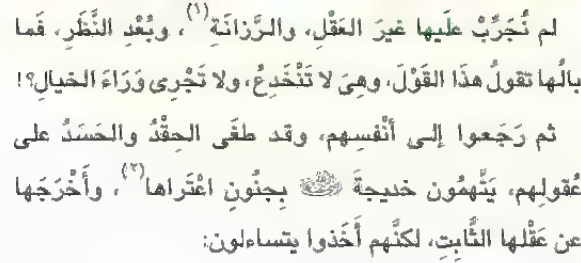 لم نُجَرِّبْ علَيها غيرَ العَقْلِ، والرَّزانَةِ(١)، وبُعْدِ النَّظَرِ، فَما
بالُها تقولُ هذَا القَوْلَ، وهِىَ لا تَنْخَدِعُ، ولا تَجْرِى وَرَاءَ الخيالِ؟!
ثم رَجَعوا إلى أنْفسِهم، وقد طغَى الحِقْدُ والحَسَدُ على
عُقولِهم، يَتَّهِمُون خديجةَ رضي الله عنها بجنُونٍ اعْتَراها(٢)، وأَخْرَجَها
عن عَقْلِها الثَّابِتِ، لكنَّهم أَخَذوا يتساءلون: